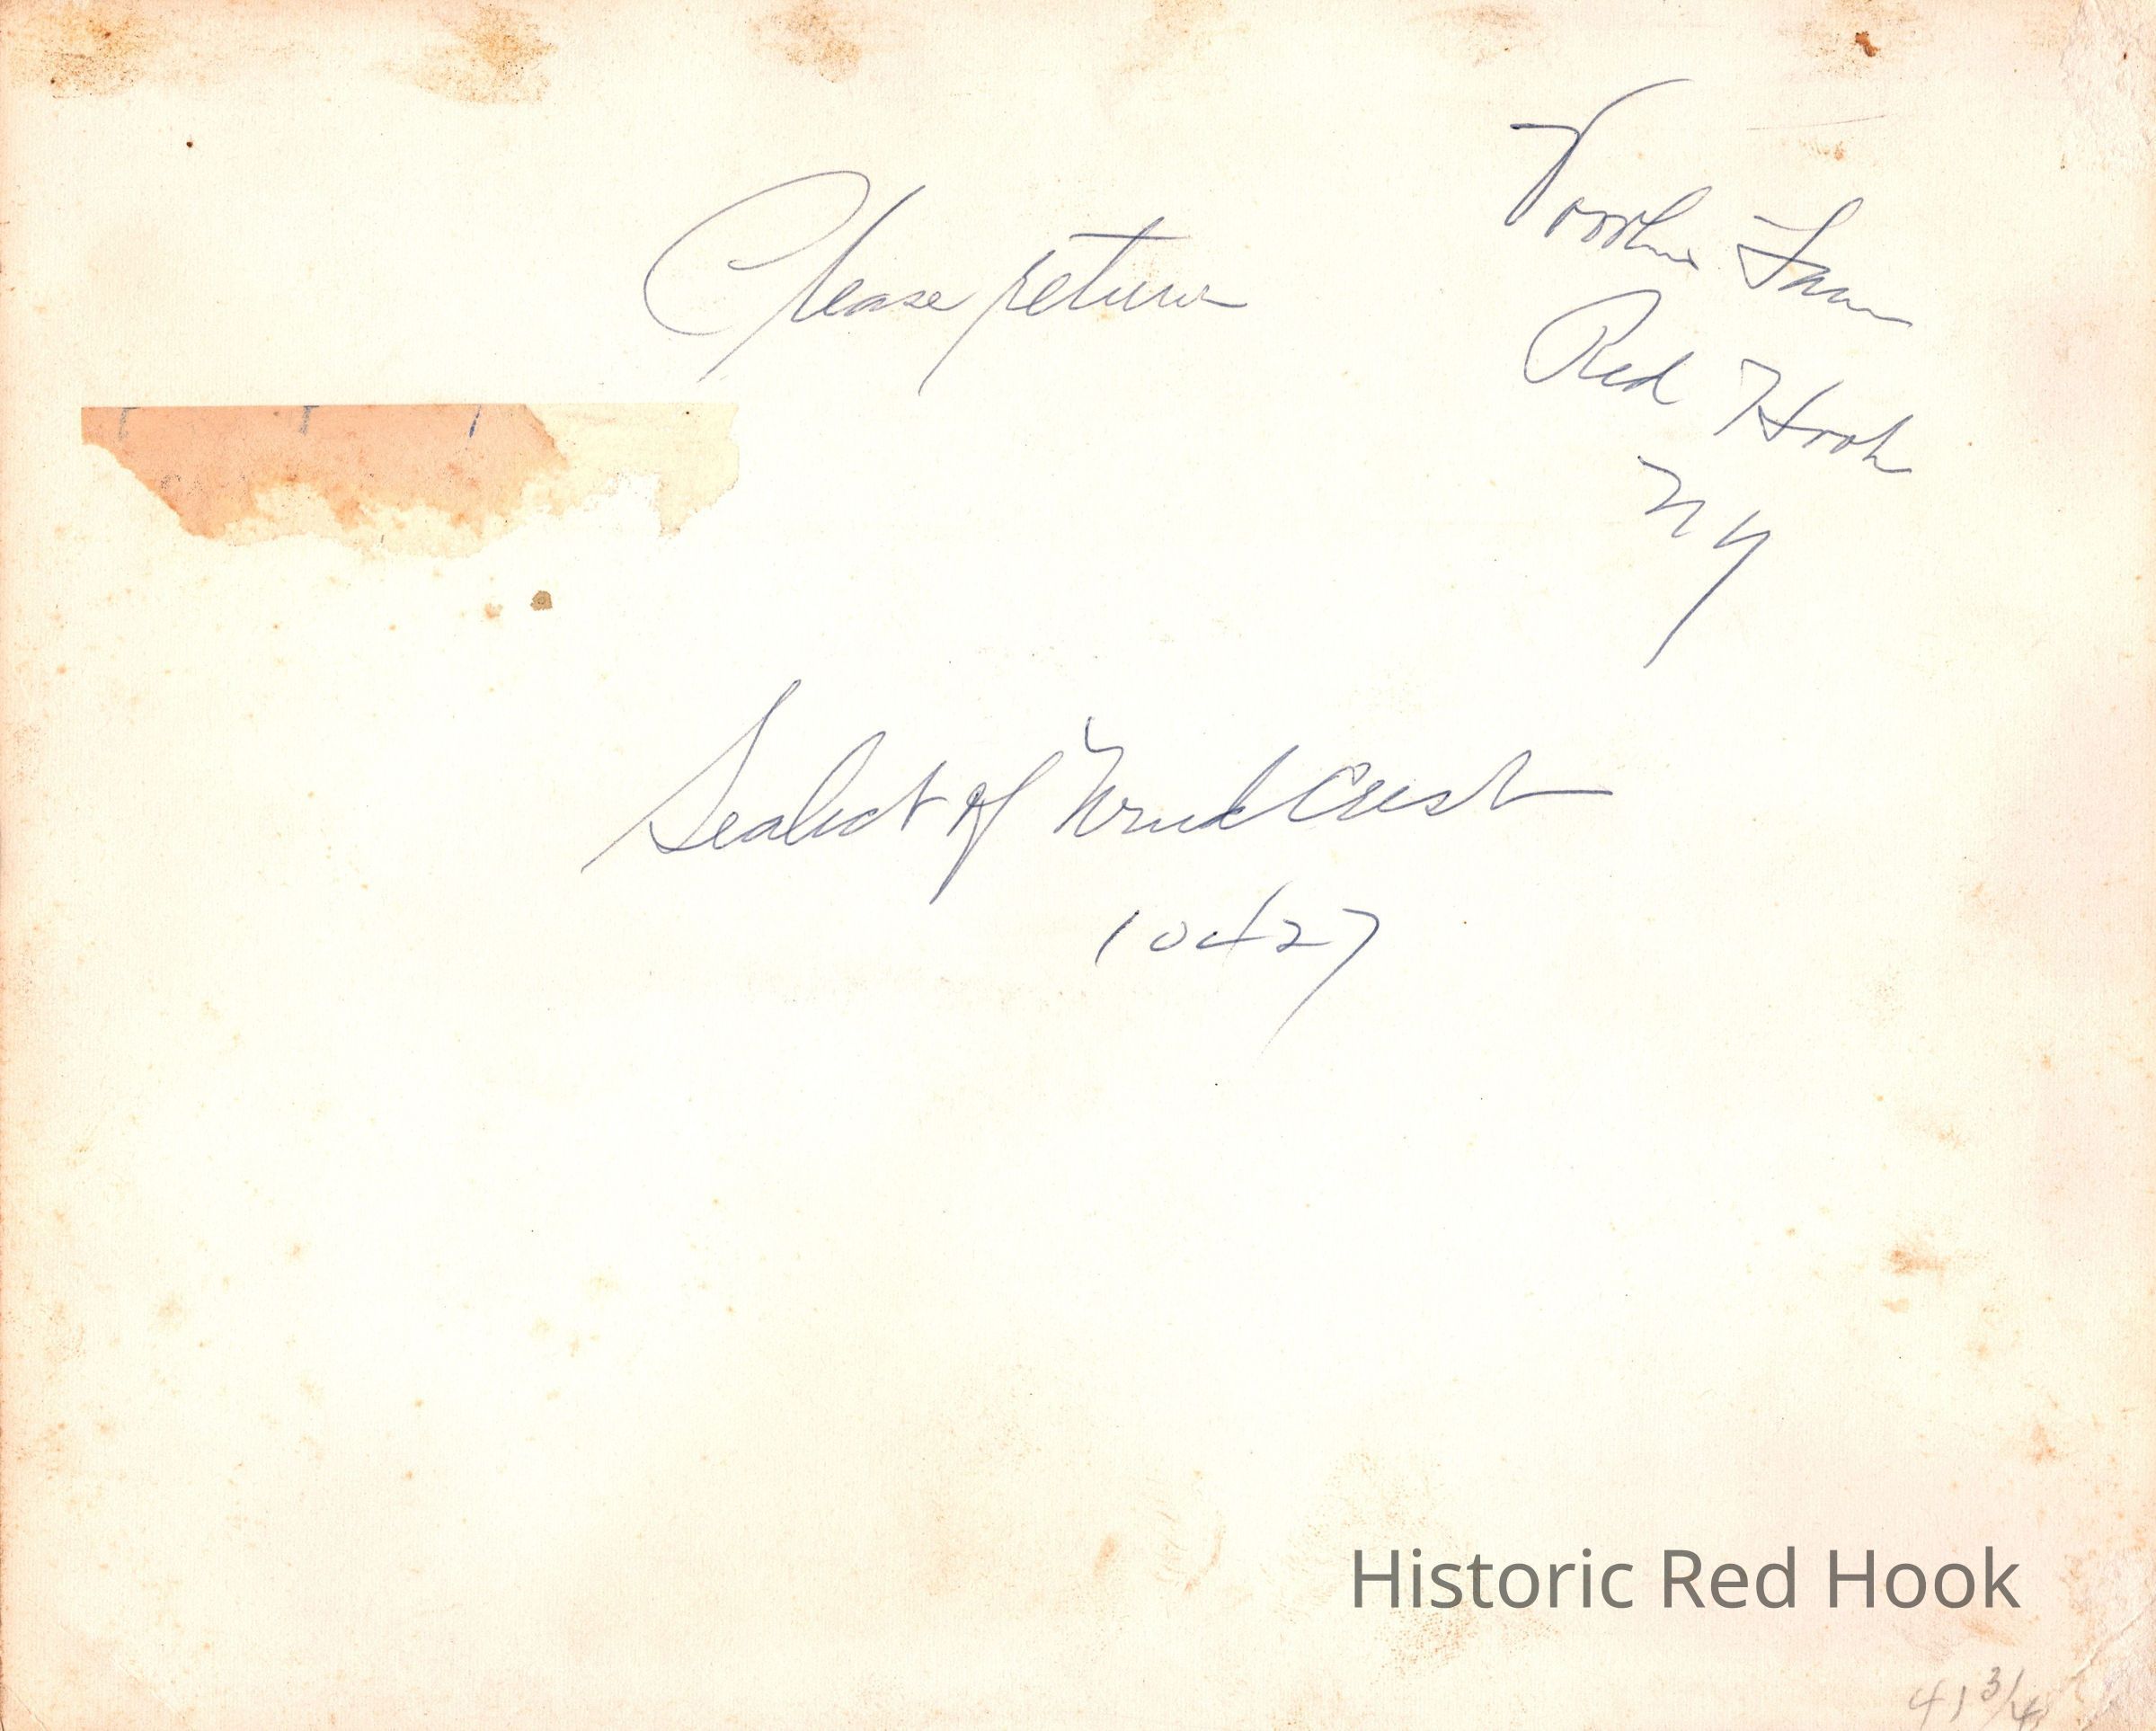 Please return
Red Hook
NY
Sealect of Wind Crest
10427
Historic Red Hook
41 3/4